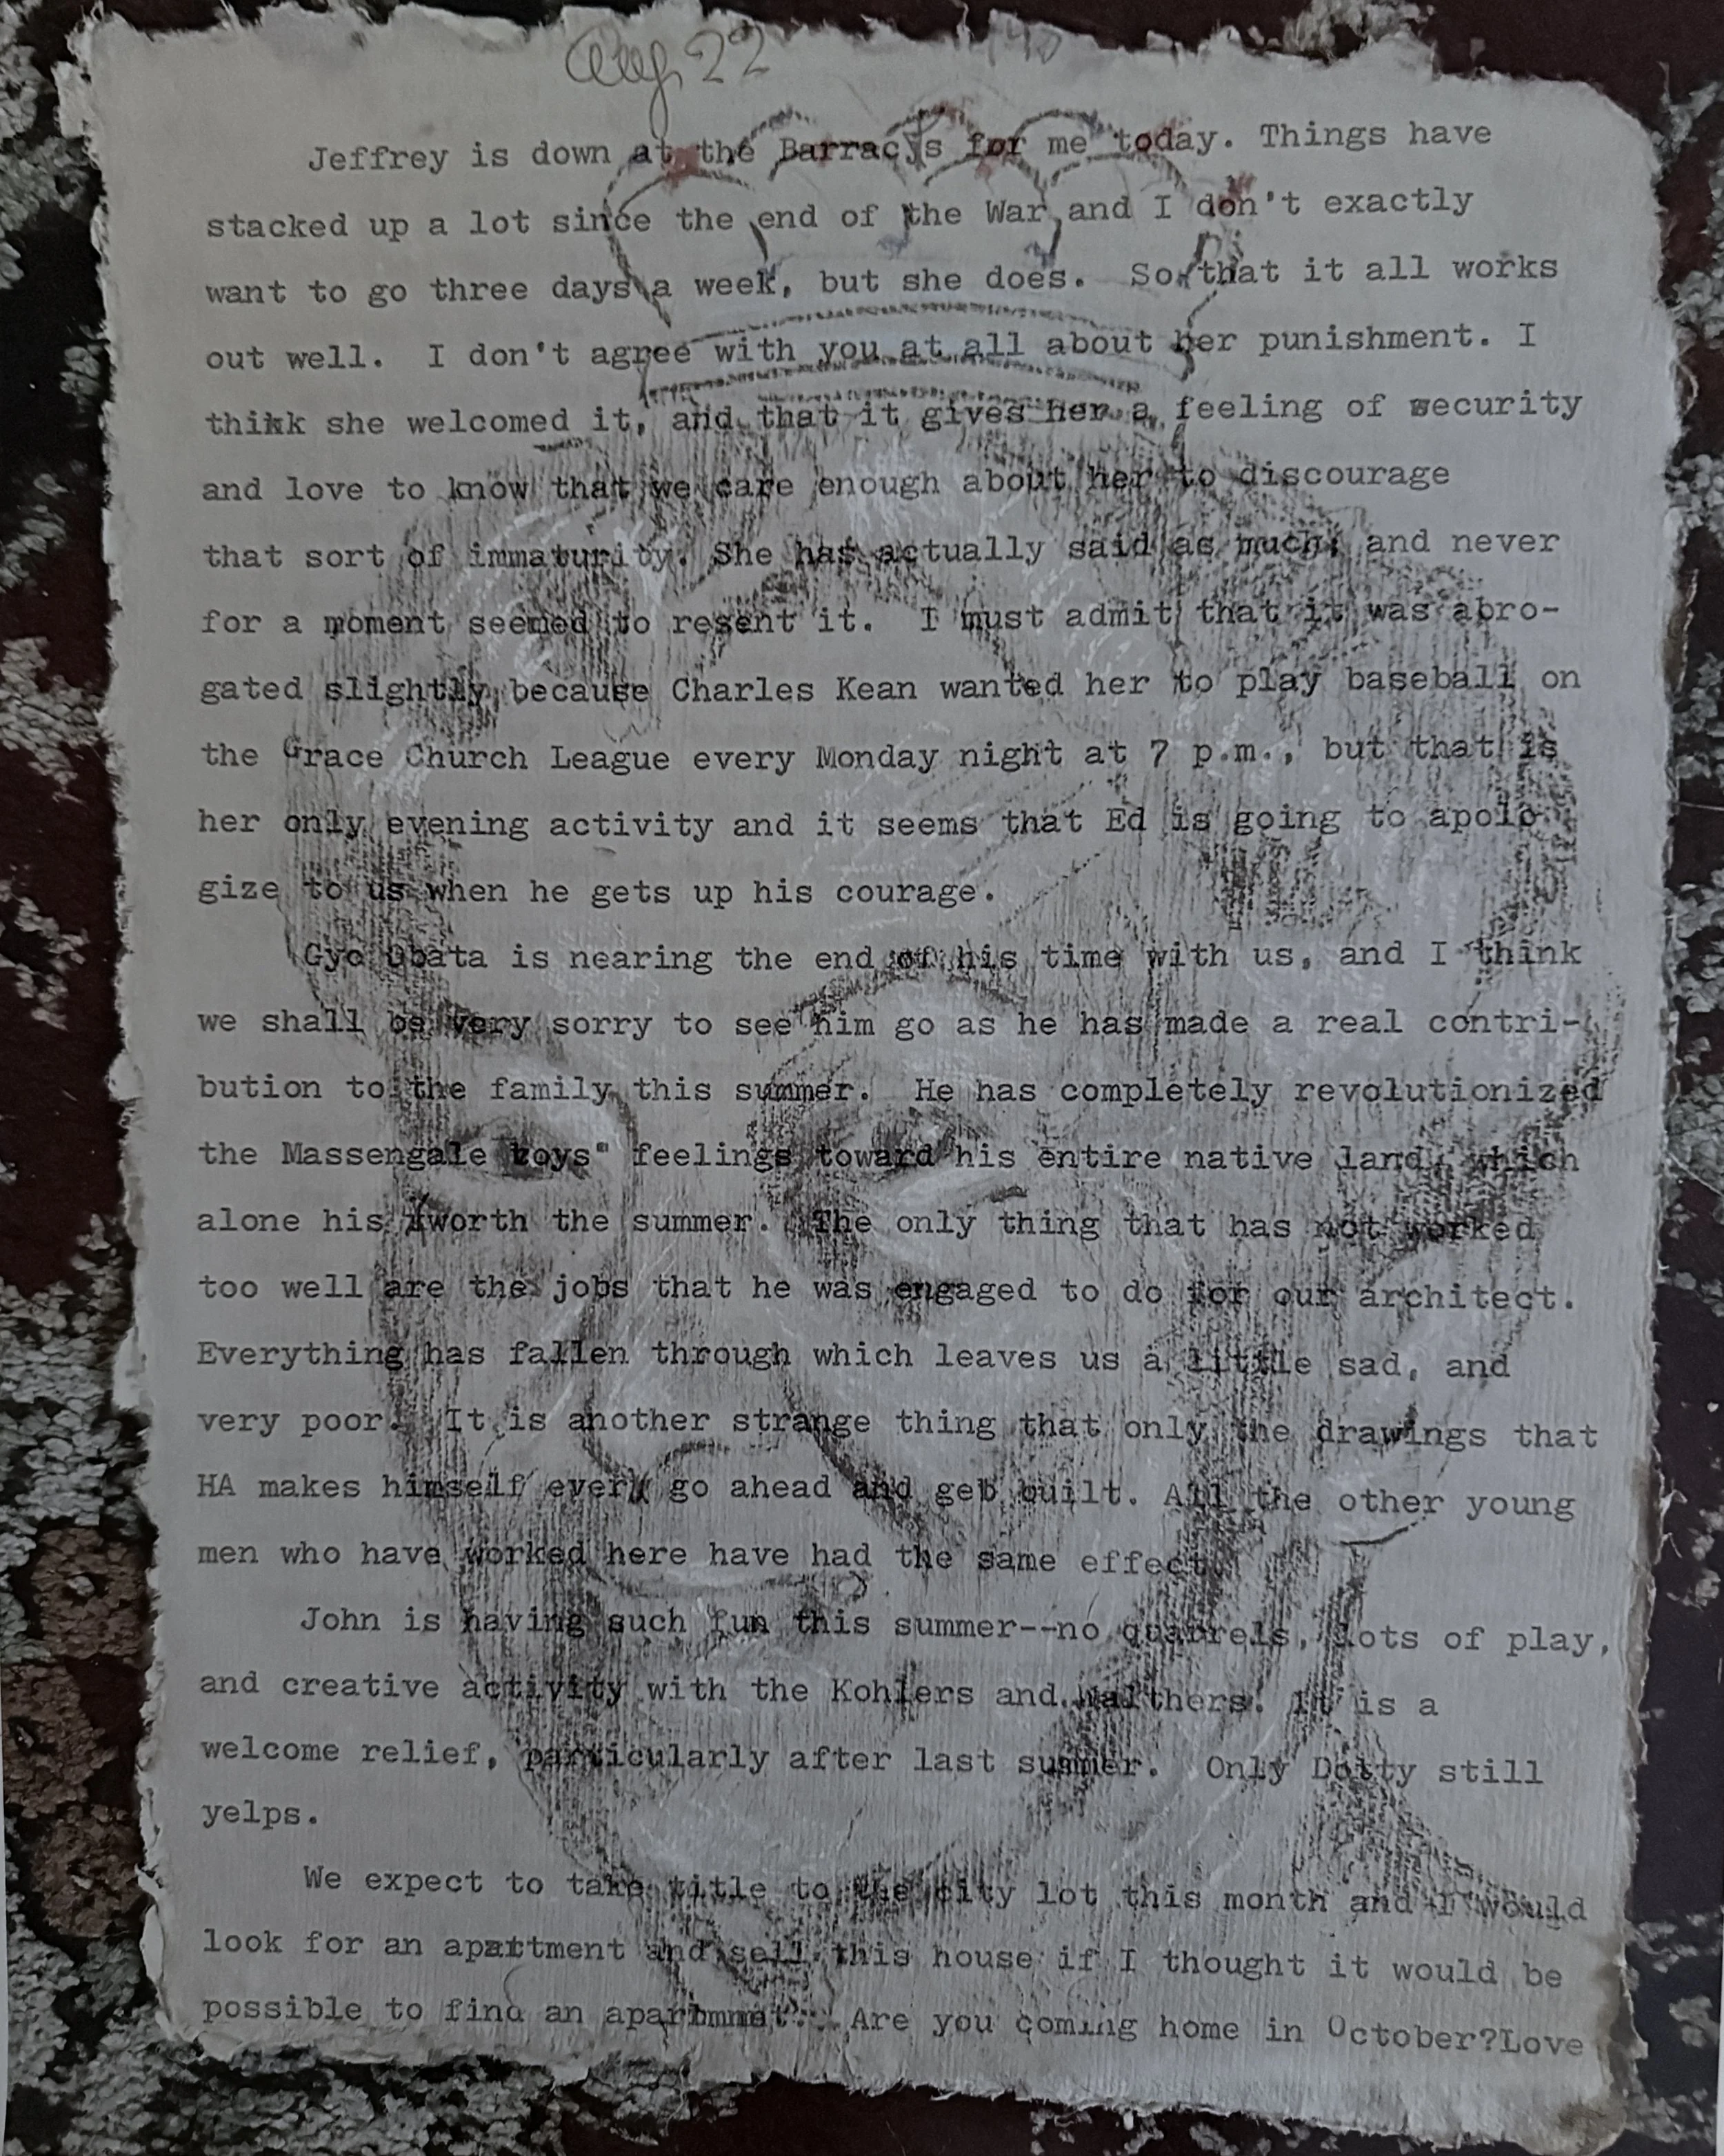 Aug 22
Jeffrey is down at the Barracys for me today. Things have
stacked up a lot since the end of the War and I don't exactly
want to go three days a week, but she does. So that it all works
out well. I don't agree with you at all about her punishment. I
thikk she welcomed it, and that it gives her a feeling of security
and love to know that we care enough about her to discourage
that sort of immaturity. She has actually said as much; and never
for a moment seemed to resent it. I must admit that it was abro-
gated slightly because Charles Kean wanted her to play baseball on
the Grace Church League every Monday night at 7 p.m., but that is
her only evening activity and it seems that Ed is going to apolo-
gize to us when he gets up his courage.
Gyo Obata is nearing the end of his time with us, and I think
we shall be very sorry to see him go as he has made a real contri-
bution to the family this summer. He has completely revolutionized
the Massengale boys" feelings toward his entire native land, which
alone his worth the summer. The only thing that has not worked
too well are the jobs that he was engaged to do for our architect.
Everything has fallen through which leaves us a little sad, and
very poor. It is another strange thing that only the drawings that
HA makes himself ever go ahead and geb built. All the other young
men who have worked here have had the same effect.
John is having such fun this summer--no quarrels, lots of play,
and creative activity with the Kohlers and Walthers. It is a
welcome relief, particularly after last summer. Only Dotty still
yelps.
We expect to take title to the city lot this month and I would
look for an apattment and sell this house if I thought it would be
possible to find an Are you coming home in October?Love